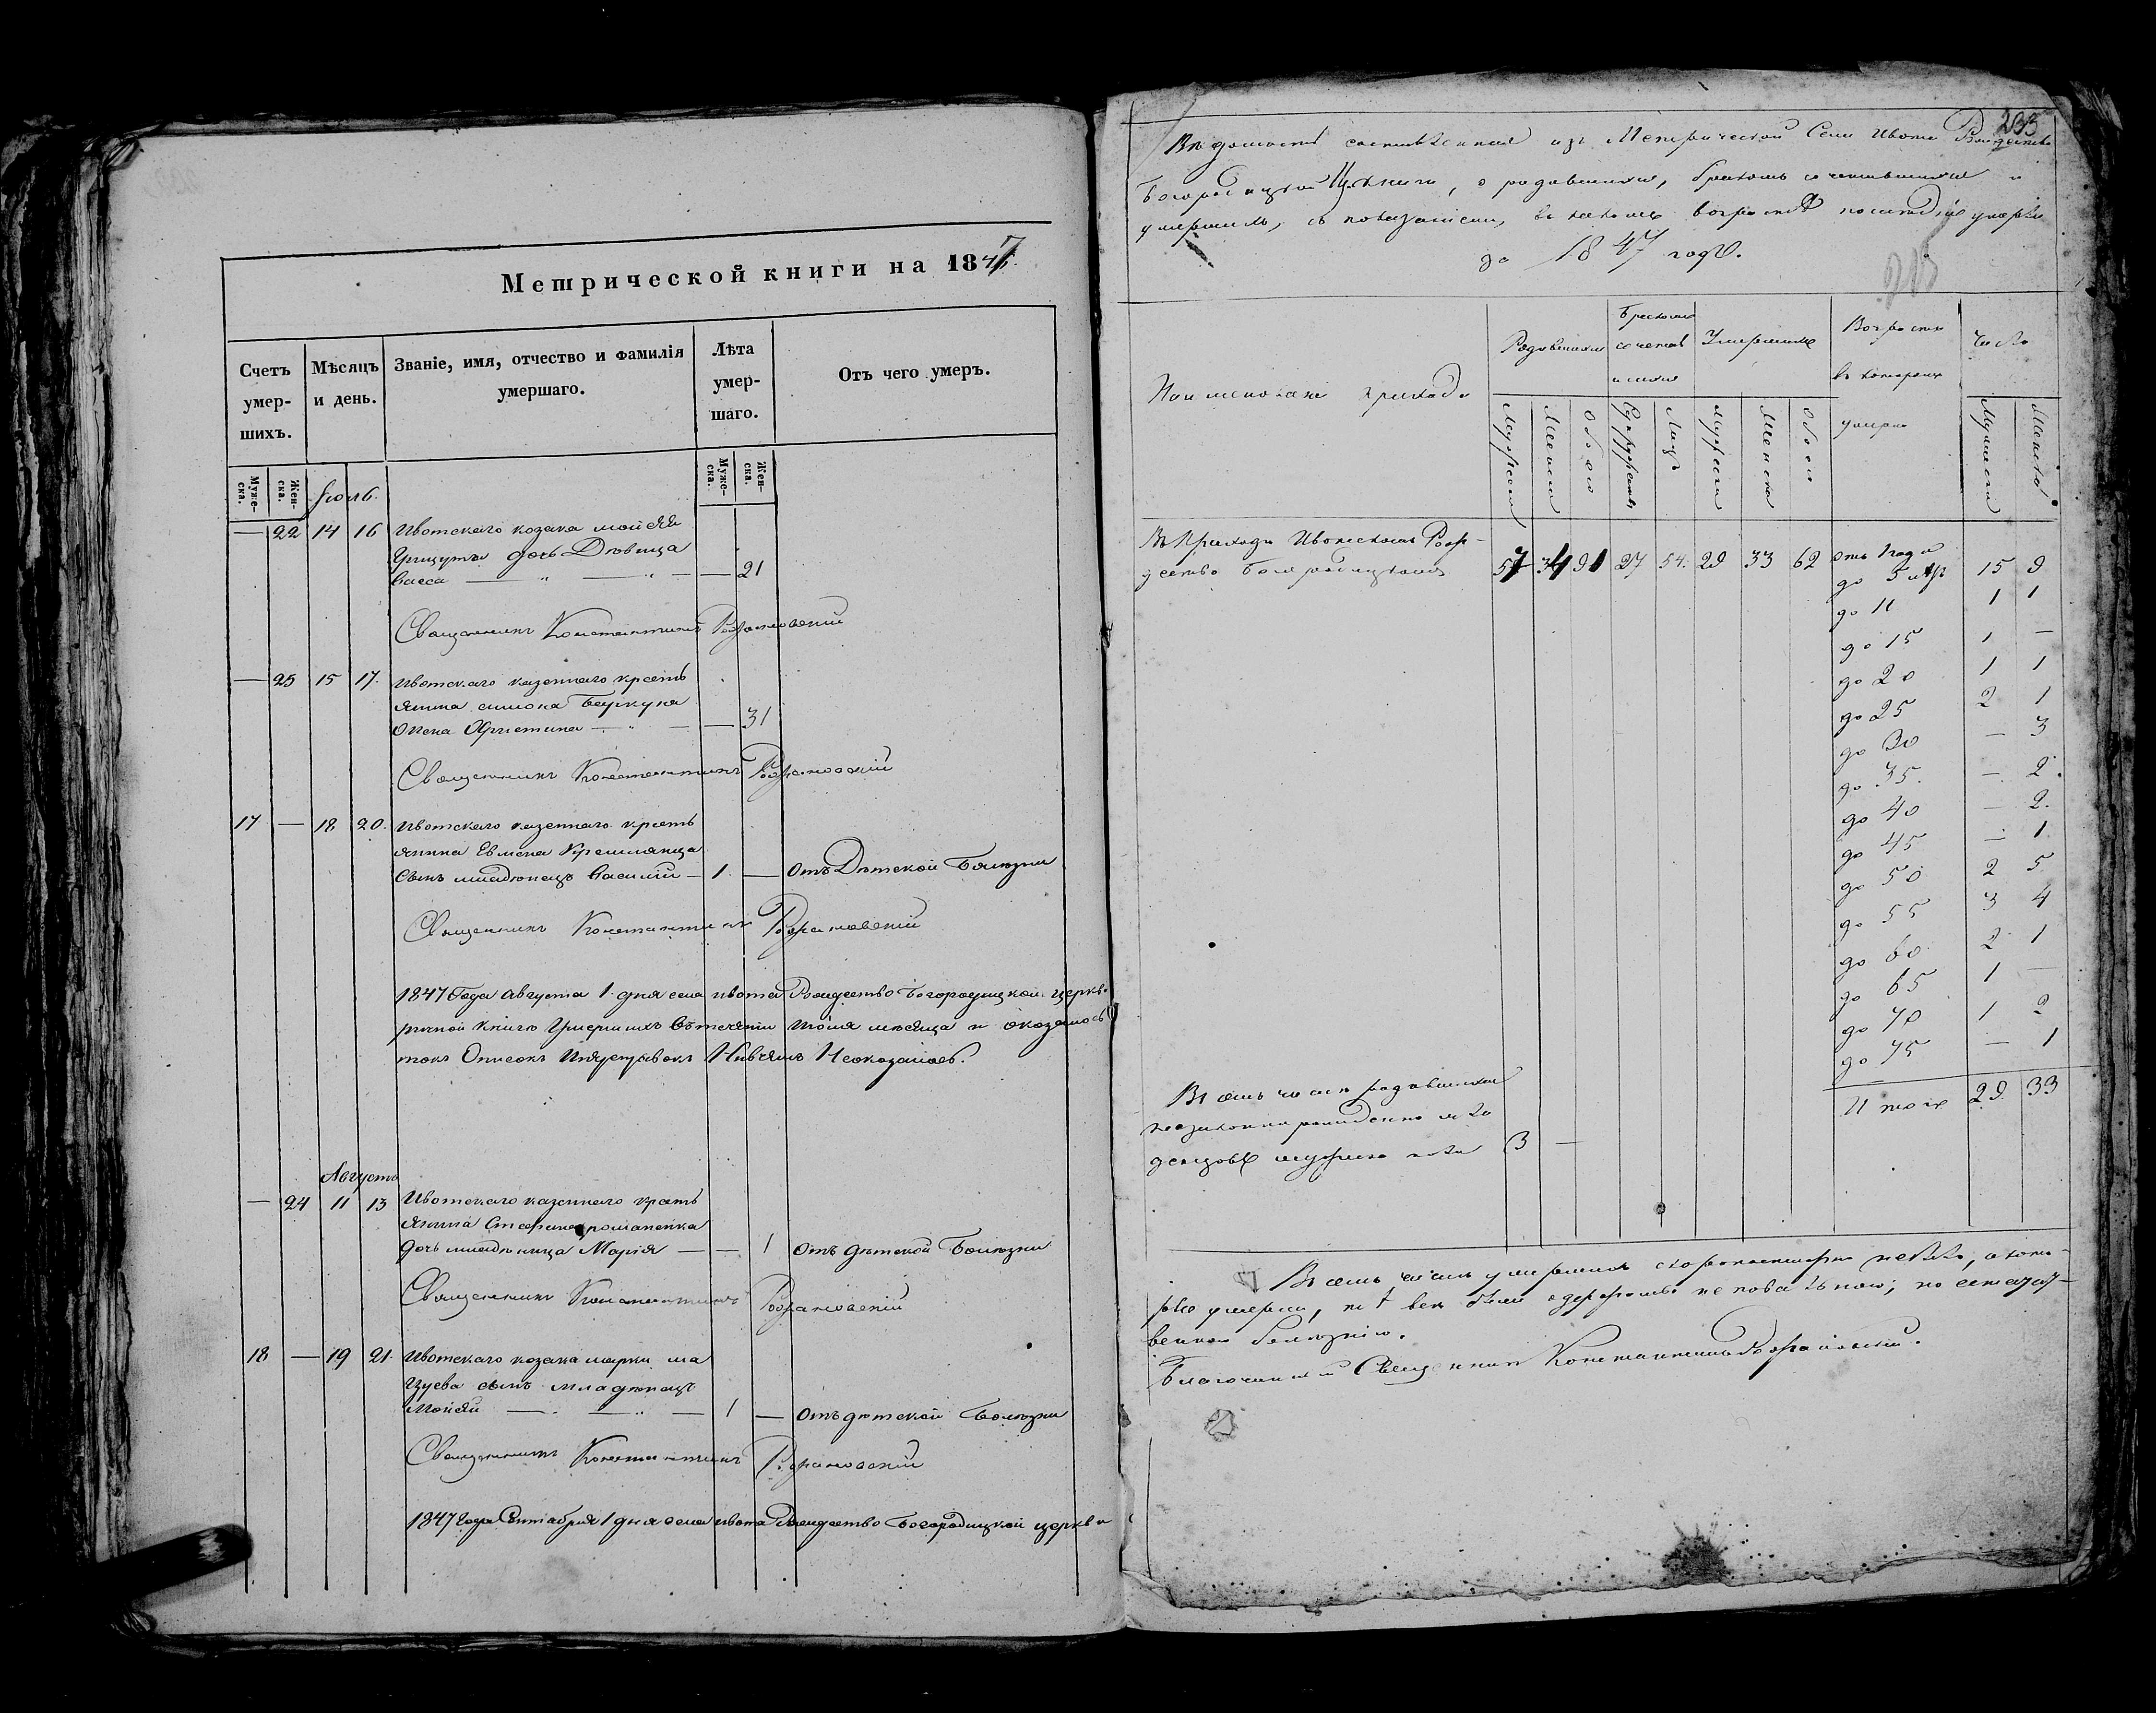 Метрической книги на 1847
Счетъ умер-шихъ.
Мѣсяцъ и день.
Званіе, имя, отчество и фамилія умершаго.
Лѣта умер-шаго.
Отъ чего умеръ.
Муже-ска.
Жен-ска.
Муже-ска.
Жен-ска.
Іюль.
— 22 14 16 Ивотскаго козака Мойсѣя
дочь Дѣвица
Васса — " — " — — 21
Священникъ Константинъ
— 23 15 17. Ивотскаго казеннаго кресть
янина Симона
жена Христина — " — — 31
Священникъ Константинъ
17 — 18 20. Ивотскаго казеннаго кресть
янина Евмена
сынъ младенецъ Василій — 1. — Отъ Дѣтской Болѣзни
Священникъ Константинъ
1847 Года Августа 1. дня села Ивота Рождество Богородицкой церкви
книгѣ Умершихъ въ теченіи Іюля мѣсяца и оказалось
Августъ
— 24 11 13 Ивотскаго казеннаго кресть
янина Стефана Романенка
дочь младеница Марія — — 1 Отъ дѣтской Болѣзни
Священникъ Константинъ
18 — 19 21. Ивотскаго козака Марка Ма
цуева сынъ младенецъ
Мойсѣй — " — " — 1 — Отъ дѣтской Болѣзни
Священникъ Константинъ
1847 Года Сентября 1 дня села Ивота Рождество Богородицкой церкви
233
Вѣдомость составленная изъ Метрической Села Ивота Рождество
Богородицкой Ц. Книги, о родившихся, бракомъ сочетавшихся и
умершихъ, съ показаніемъ, въ какомъ возрастѣ последніе умерли
за 1847 годъ.
Наименованіе прихода
Родившихся
Бракомъ сочетав шихся
Умершихъ
Возрастъ въ которомъ умерли
Число
Мужеска
Женска
Обоего
Супружествъ
Лицъ
Мужеска
Женска
Обоего
Мужеска
Женска
Въ Приходѣ Ивотскомъ Рож-
дество Богородицкомъ 57 34 91 27 54. 29 33 62 отъ 1 года
до 5 лѣтъ 15 9
до 10 1 1
до 15 1 —
до 20 1 1
до 25 2 1
до 30 — 3
до 35. — 2.
до 40 — 2.
до 45 — 1
до 50 2 5
до 55 3 4
до 60 2 1
до 65 1 —
до 70 1 2
до 75 — 1
Итого 29. 33
Въ семъ числѣ родившихся
незаконнорожденно мла
денцовъ мужеска пола 3 —
Въ семъ числѣ умершихъ скоропостижно небыло, а кото-
рые умерли,
венною болѣзнію.
Благочинный Священникъ Константинъ